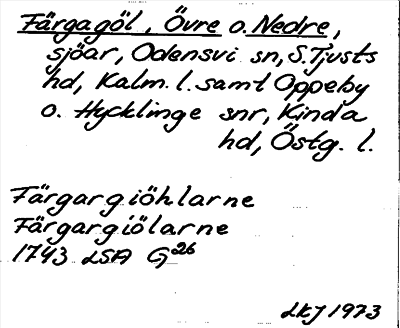 Färgagöl, Övre o. Nedre,
sjöar, Odensvi sn, S. Tjusts
hd, Kalm. l. samt Oppeby
o. Hycklinge snr, Kinda
hd, Östg. l.
Färgargiöhlarne
Färgargiölarne
1743 LSA G26
LKJ 1973